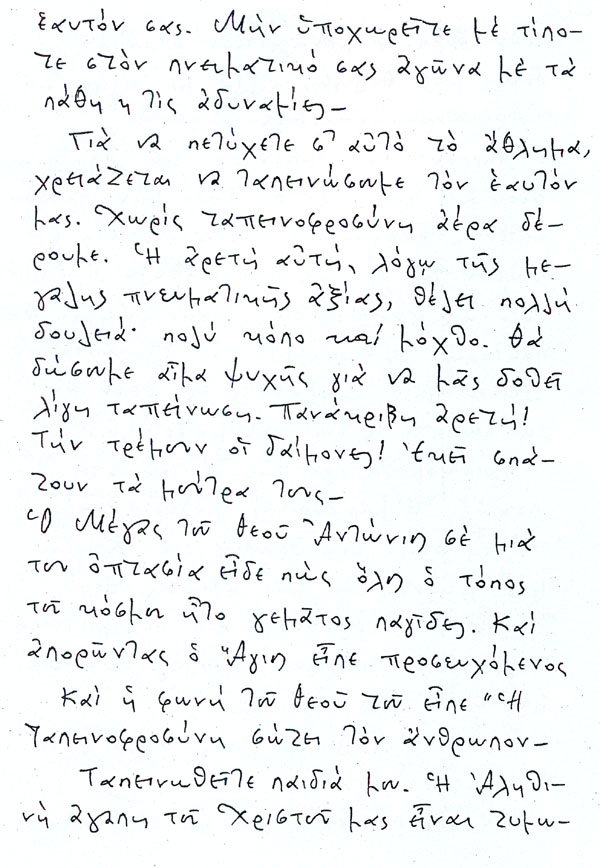 ἑαυτόν σας. Μήν ὑποχωρεῖτε μέ τίπο-
τε στόν πνευματικό σας ἀγῶνα μέ τά
πάθη ἤ τίς ἀδυναμίες-
Γιὰ νά πετύχετε σ' αὐτό τό ἄθλημα,
χρειάζεται νά ταπεινώσωμε τόν ἑαυτόν
μας. Χωρίς ταπεινοφροσύνη ἀέρα δέ-
ρουμε. Ἡ ἀρετή αὐτή, λόγῳ τῆς με-
γάλης πνευματικῆς ἀξίας, θέλει πολλή
δουλειά· πολύ κόπο καί μόχθο. Θά
δώσωμε αἷμα ψυχῆς γιά νά μᾶς δοθεῖ
λίγη ταπείνωση. Πανάκριβη ἀρετή!
Τήν τρέμουν οἱ δαίμονες! Ἐκεῖ σπά-
ζουν τά μοῦτρα τους-
Ὁ Μέγας τοῦ Θεοῦ Ἀντώνιος σέ μιά
του ὀπτασία εἶδε πώς ὅλος ὁ τόπος
τοῦ κόσμου ἦτο γεμᾶτος παγῖδες. Καί
ἀπορῶντας ὁ Ἅγιος εἶπε προσευχόμενος
Καί ἡ φωνή τοῦ Θεοῦ τοῦ εἶπε "Ἡ
Ταπεινοφροσύνη σώζει τόν ἄνθρωπον-
Ταπεινωθεῖτε παιδιά μου. Ἡ Ἀληθι-
νή ἀγάπη τοῦ Χριστοῦ μας εἶναι ζυμω-